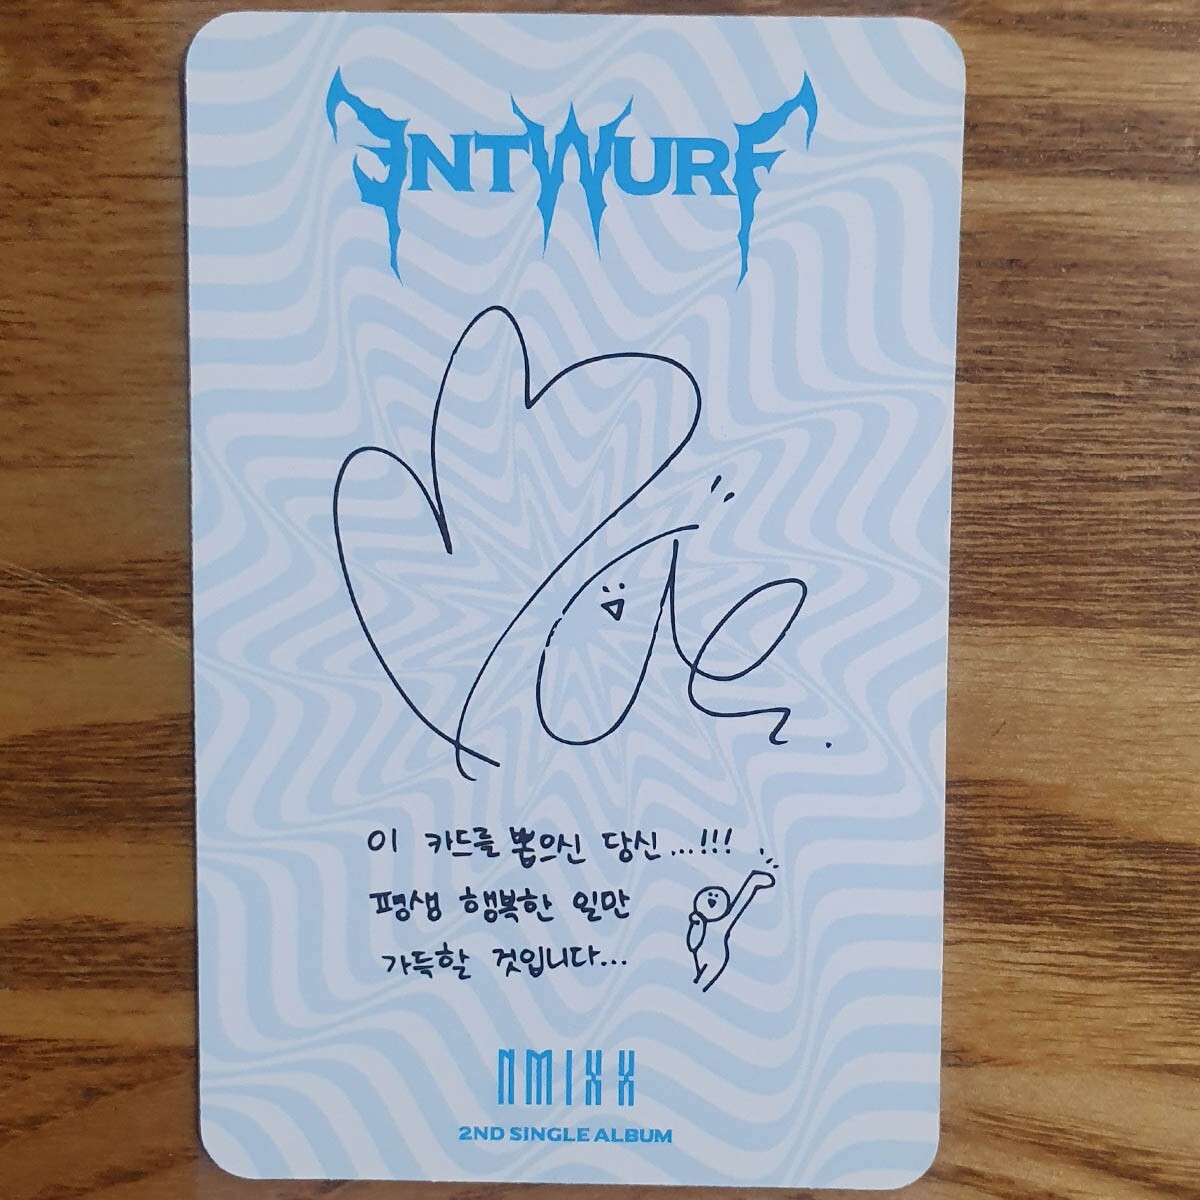 ENTWURF
이 카드를 뽑으신 당신...!!!
평생 행복한 일만
가득할 것입니다...
NMIXX
2ND SINGLE ALBUM